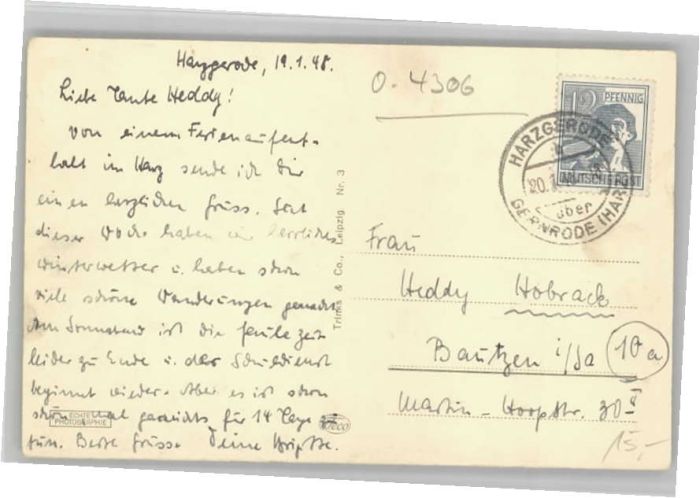 Harzgerode, 19.1.48.
Liebe Tante Heddy!
Von einem Ferienaufent-
halt im Harz sende ich Dir
einen herzlichen Gruss. Seit
dieser Woche haben wir herrliches
Winterwetter u. haben schon
viele schöne Wanderungen gemacht.
Am Sonnabend ist die faule Zeit
leider zu Ende u. der Schuldienst
beginnt wieder. Aber es ist schon
schön mal garnichts für 14 Tage zu
tun. Beste Grüsse Deine
ECHTE
PHOTOGRAPHIE
Trinks & Co., Leipzig Nr. 3
O-4306
12 PFENNIG
DEUTSCHE POST
HARZGERODE
20.1.
über
GERNRODE (HARZ)
Frau
Heddy Hobrack
Bautzen i/Sa (10a)
Martin-Hoopstr. 30 II
15,-